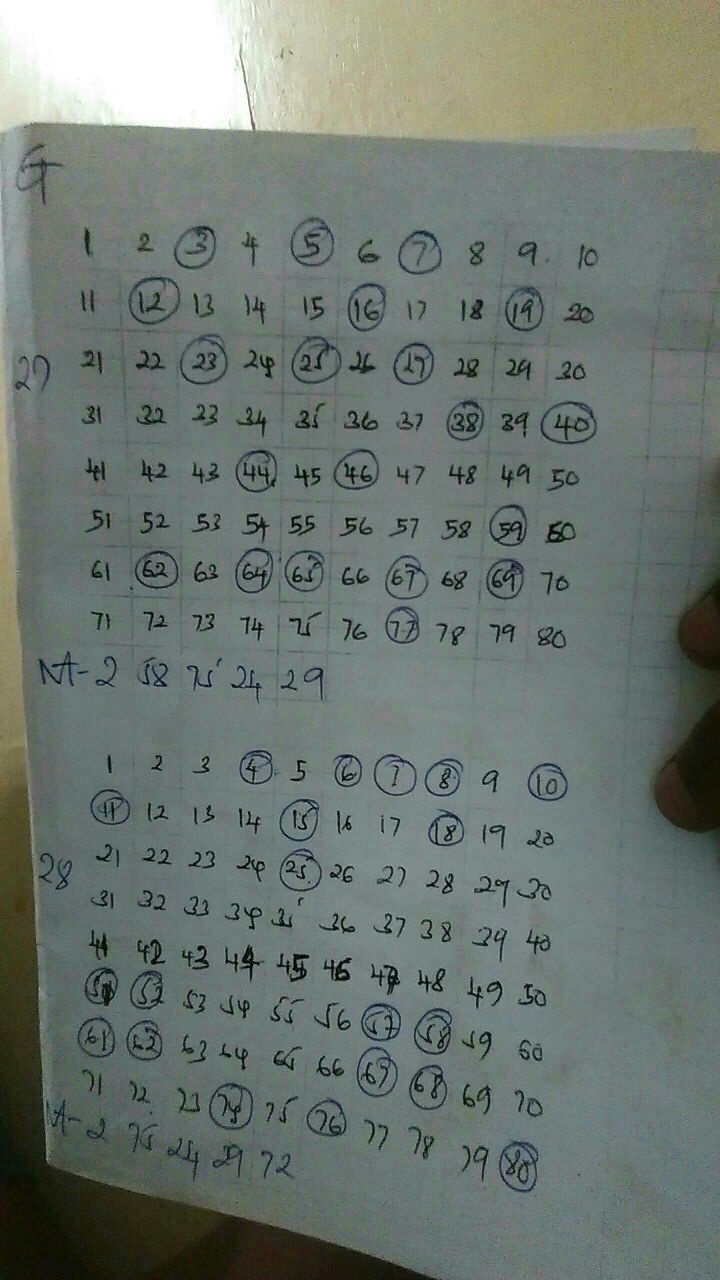 G
1 2 3 4 5 6 7 8 9 10
11 12 13 14 15 16 17 18 19 20
27 21 22 23 24 25 26 27 28 29 30
31 32 33 34 35 36 37 38 39 40
41 42 43 44 45 46 47 48 49 50
51 52 53 54 55 56 57 58 59 60
61 62 63 64 65 66 67 68 69 70
71 72 73 74 75 76 77 78 79 80
NA- 2 58 75 24 29
1 2 3 4 5 6 7 8 9 10
11 12 13 14 15 16 17 18 19 20
28 21 22 23 24 25 26 27 28 29 30
31 32 33 34 35 36 37 38 39 40
41 42 43 44 45 46 47 48 49 50
51 52 53 54 55 56 57 58 59 60
61 62 63 64 65 66 67 68 69 70
71 72 73 74 75 76 77 78 79 80
NA- 2 75 24 29 72